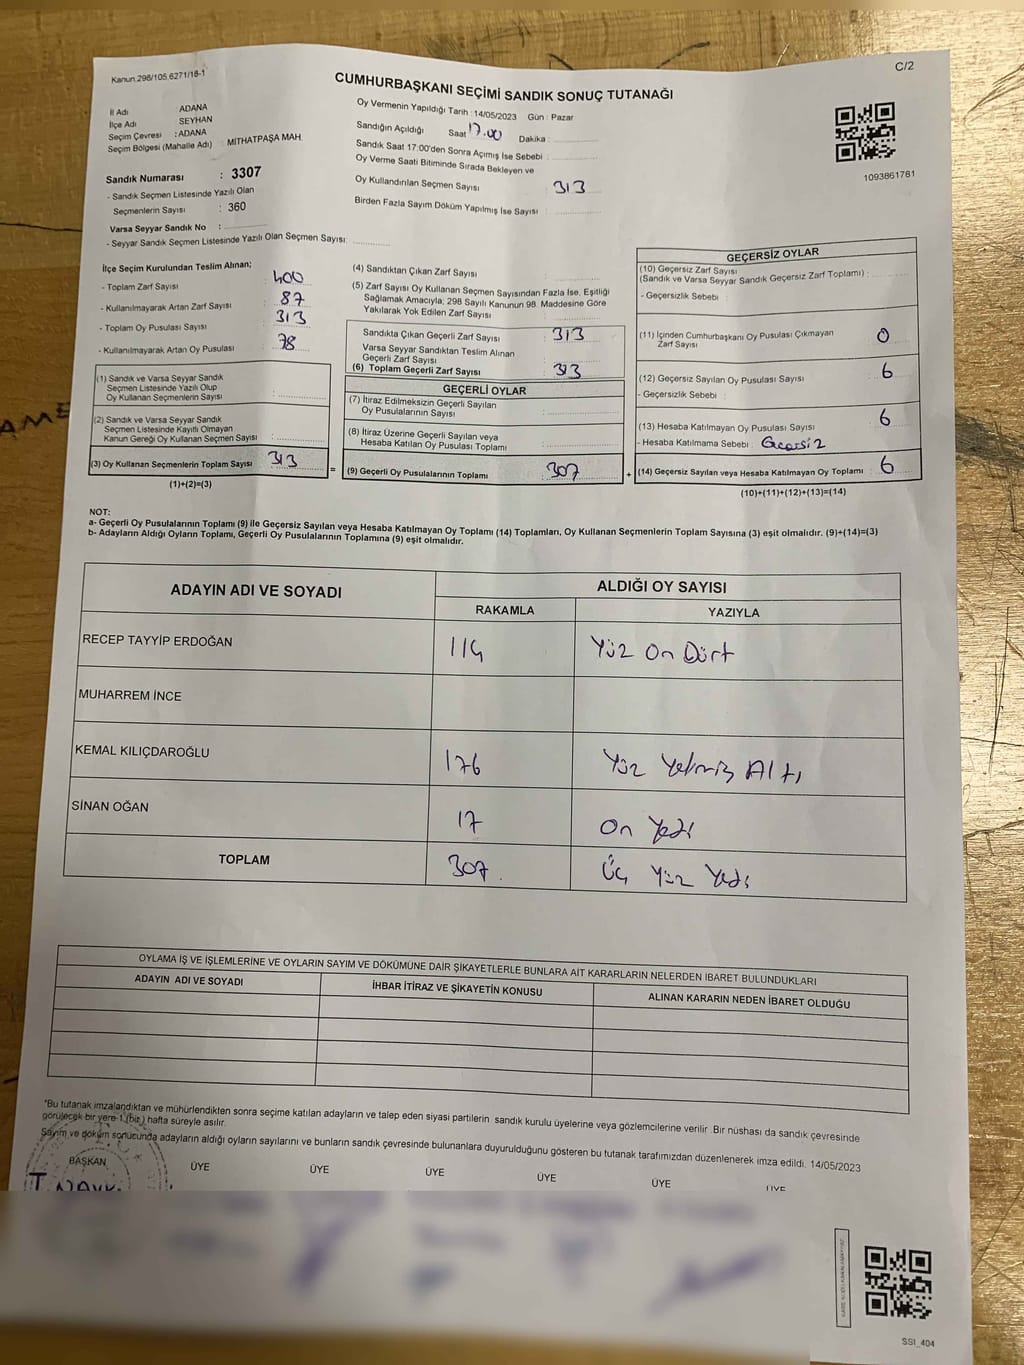 Kanun 298/105,6271/18-1
C/2
CUMHURBAŞKANI SEÇİMİ SANDIK SONUÇ TUTANAĞI
İl Adı : ADANA
İlçe Adı : SEYHAN
Seçim Çevresi : ADANA
Seçim Bölgesi (Mahalle Adı) : MİTHATPAŞA MAH.
Oy Vermenin Yapıldığı Tarih : 14/05/2023 Gün : Pazar
Sandığın Açıldığı Saat 17.00 Dakika :
Sandık Saat 17:00'den Sonra Açımış İse Sebebi :
Oy Verme Saati Bitiminde Sırada Bekleyen ve
Oy Kullandırılan Seçmen Sayısı : 313
Birden Fazla Sayım Döküm Yapılmış İse Sayısı :
1093861761
Sandık Numarası : 3307
- Sandık Seçmen Listesinde Yazılı Olan
Seçmenlerin Sayısı : 360
Varsa Seyyar Sandık No :
- Seyyar Sandık Seçmen Listesinde Yazılı Olan Seçmen Sayısı:
İlçe Seçim Kurulundan Teslim Alınan;
- Toplam Zarf Sayısı : 400
- Kullanılmayarak Artan Zarf Sayısı : 87
- Toplam Oy Pusulası Sayısı : 313
- Kullanılmayarak Artan Oy Pusulası : 78
(1) Sandık ve Varsa Seyyar Sandık
Seçmen Listesinde Yazılı Olup
Oy Kullanan Seçmenlerin Sayısı :
(2) Sandık ve Varsa Seyyar Sandık
Seçmen Listesinde Kayıtlı Olmayan
Kanun Gereği Oy Kullanan Seçmen Sayısı :
(3) Oy Kullanan Seçmenlerin Toplam Sayısı : 313
(1)+(2)=(3)
=
(4) Sandıktan Çıkan Zarf Sayısı :
(5) Zarf Sayısı Oy Kullanan Seçmen Sayısından Fazla İse, Eşitliği
Sağlamak Amacıyla; 298 Sayılı Kanunun 98. Maddesine Göre
Yakılarak Yok Edilen Zarf Sayısı :
Sandıkta Çıkan Geçerli Zarf Sayısı : 313
Varsa Seyyar Sandıktan Teslim Alınan
Geçerli Zarf Sayısı
(6) Toplam Geçerli Zarf Sayısı : 313
GEÇERLİ OYLAR
(7) İtiraz Edilmeksizin Geçerli Sayılan
Oy Pusulalarının Sayısı :
(8) İtiraz Üzerine Geçerli Sayılan veya
Hesaba Katılan Oy Pusulası Toplamı :
(9) Geçerli Oy Pusulalarının Toplamı : 307
+
GEÇERSİZ OYLAR
(10) Geçersiz Zarf Sayısı
(Sandık ve Varsa Seyyar Sandık Geçersiz Zarf Toplamı) :
- Geçersizlik Sebebi :
(11) İçinden Cumhurbaşkanı Oy Pusulası Çıkmayan
Zarf Sayısı : 0
(12) Geçersiz Sayılan Oy Pusulası Sayısı : 6
- Geçersizlik Sebebi :
(13) Hesaba Katılmayan Oy Pusulası Sayısı : 6
- Hesaba Katılmama Sebebi : Geçersiz
(14) Geçersiz Sayılan veya Hesaba Katılmayan Oy Toplamı : 6
(10)+(11)+(12)+(13)=(14)
NOT:
a- Geçerli Oy Pusulalarının Toplamı (9) ile Geçersiz Sayılan veya Hesaba Katılmayan Oy Toplamı (14) Toplamları, Oy Kullanan Seçmenlerin Toplam Sayısına (3) eşit olmalıdır. (9)+(14)=(3)
b- Adayların Aldığı Oyların Toplamı, Geçerli Oy Pusulalarının Toplamına (9) eşit olmalıdır.
ADAYIN ADI VE SOYADI
ALDIĞI OY SAYISI
RAKAMLA YAZIYLA
RECEP TAYYİP ERDOĞAN 114 Yüz On Dört
MUHARREM İNCE
KEMAL KILIÇDAROĞLU 176 Yüz Yetmiş Altı
SİNAN OĞAN 17 On Yedi
TOPLAM 307 Üç Yüz Yedi
OYLAMA İŞ VE İŞLEMLERİNE VE OYLARIN SAYIM VE DÖKÜMÜNE DAİR ŞİKAYETLERLE BUNLARA AİT KARARLARIN NELERDEN İBARET BULUNDUKLARI
ADAYIN ADI VE SOYADI İHBAR İTİRAZ VE ŞİKAYETİN KONUSU ALINAN KARARIN NEDEN İBARET OLDUĞU
*Bu tutanak imzalandıktan ve mühürlendikten sonra seçime katılan adayların ve talep eden siyasi partilerin sandık kurulu üyelerine veya gözlemcilerine verilir. Bir nüshası da sandık çevresinde
görülecek bir yere 1 (bir) hafta süreyle asılır.
Sayım ve döküm sonucunda adayların aldığı oyların sayılarını ve bunların sandık çevresinde bulunanlara duyurulduğunu gösteren bu tutanak tarafımızdan düzenlenerek imza edildi. 14/05/2023
BAŞKAN ÜYE ÜYE ÜYE ÜYE ÜYE ÜYE
SSI_404